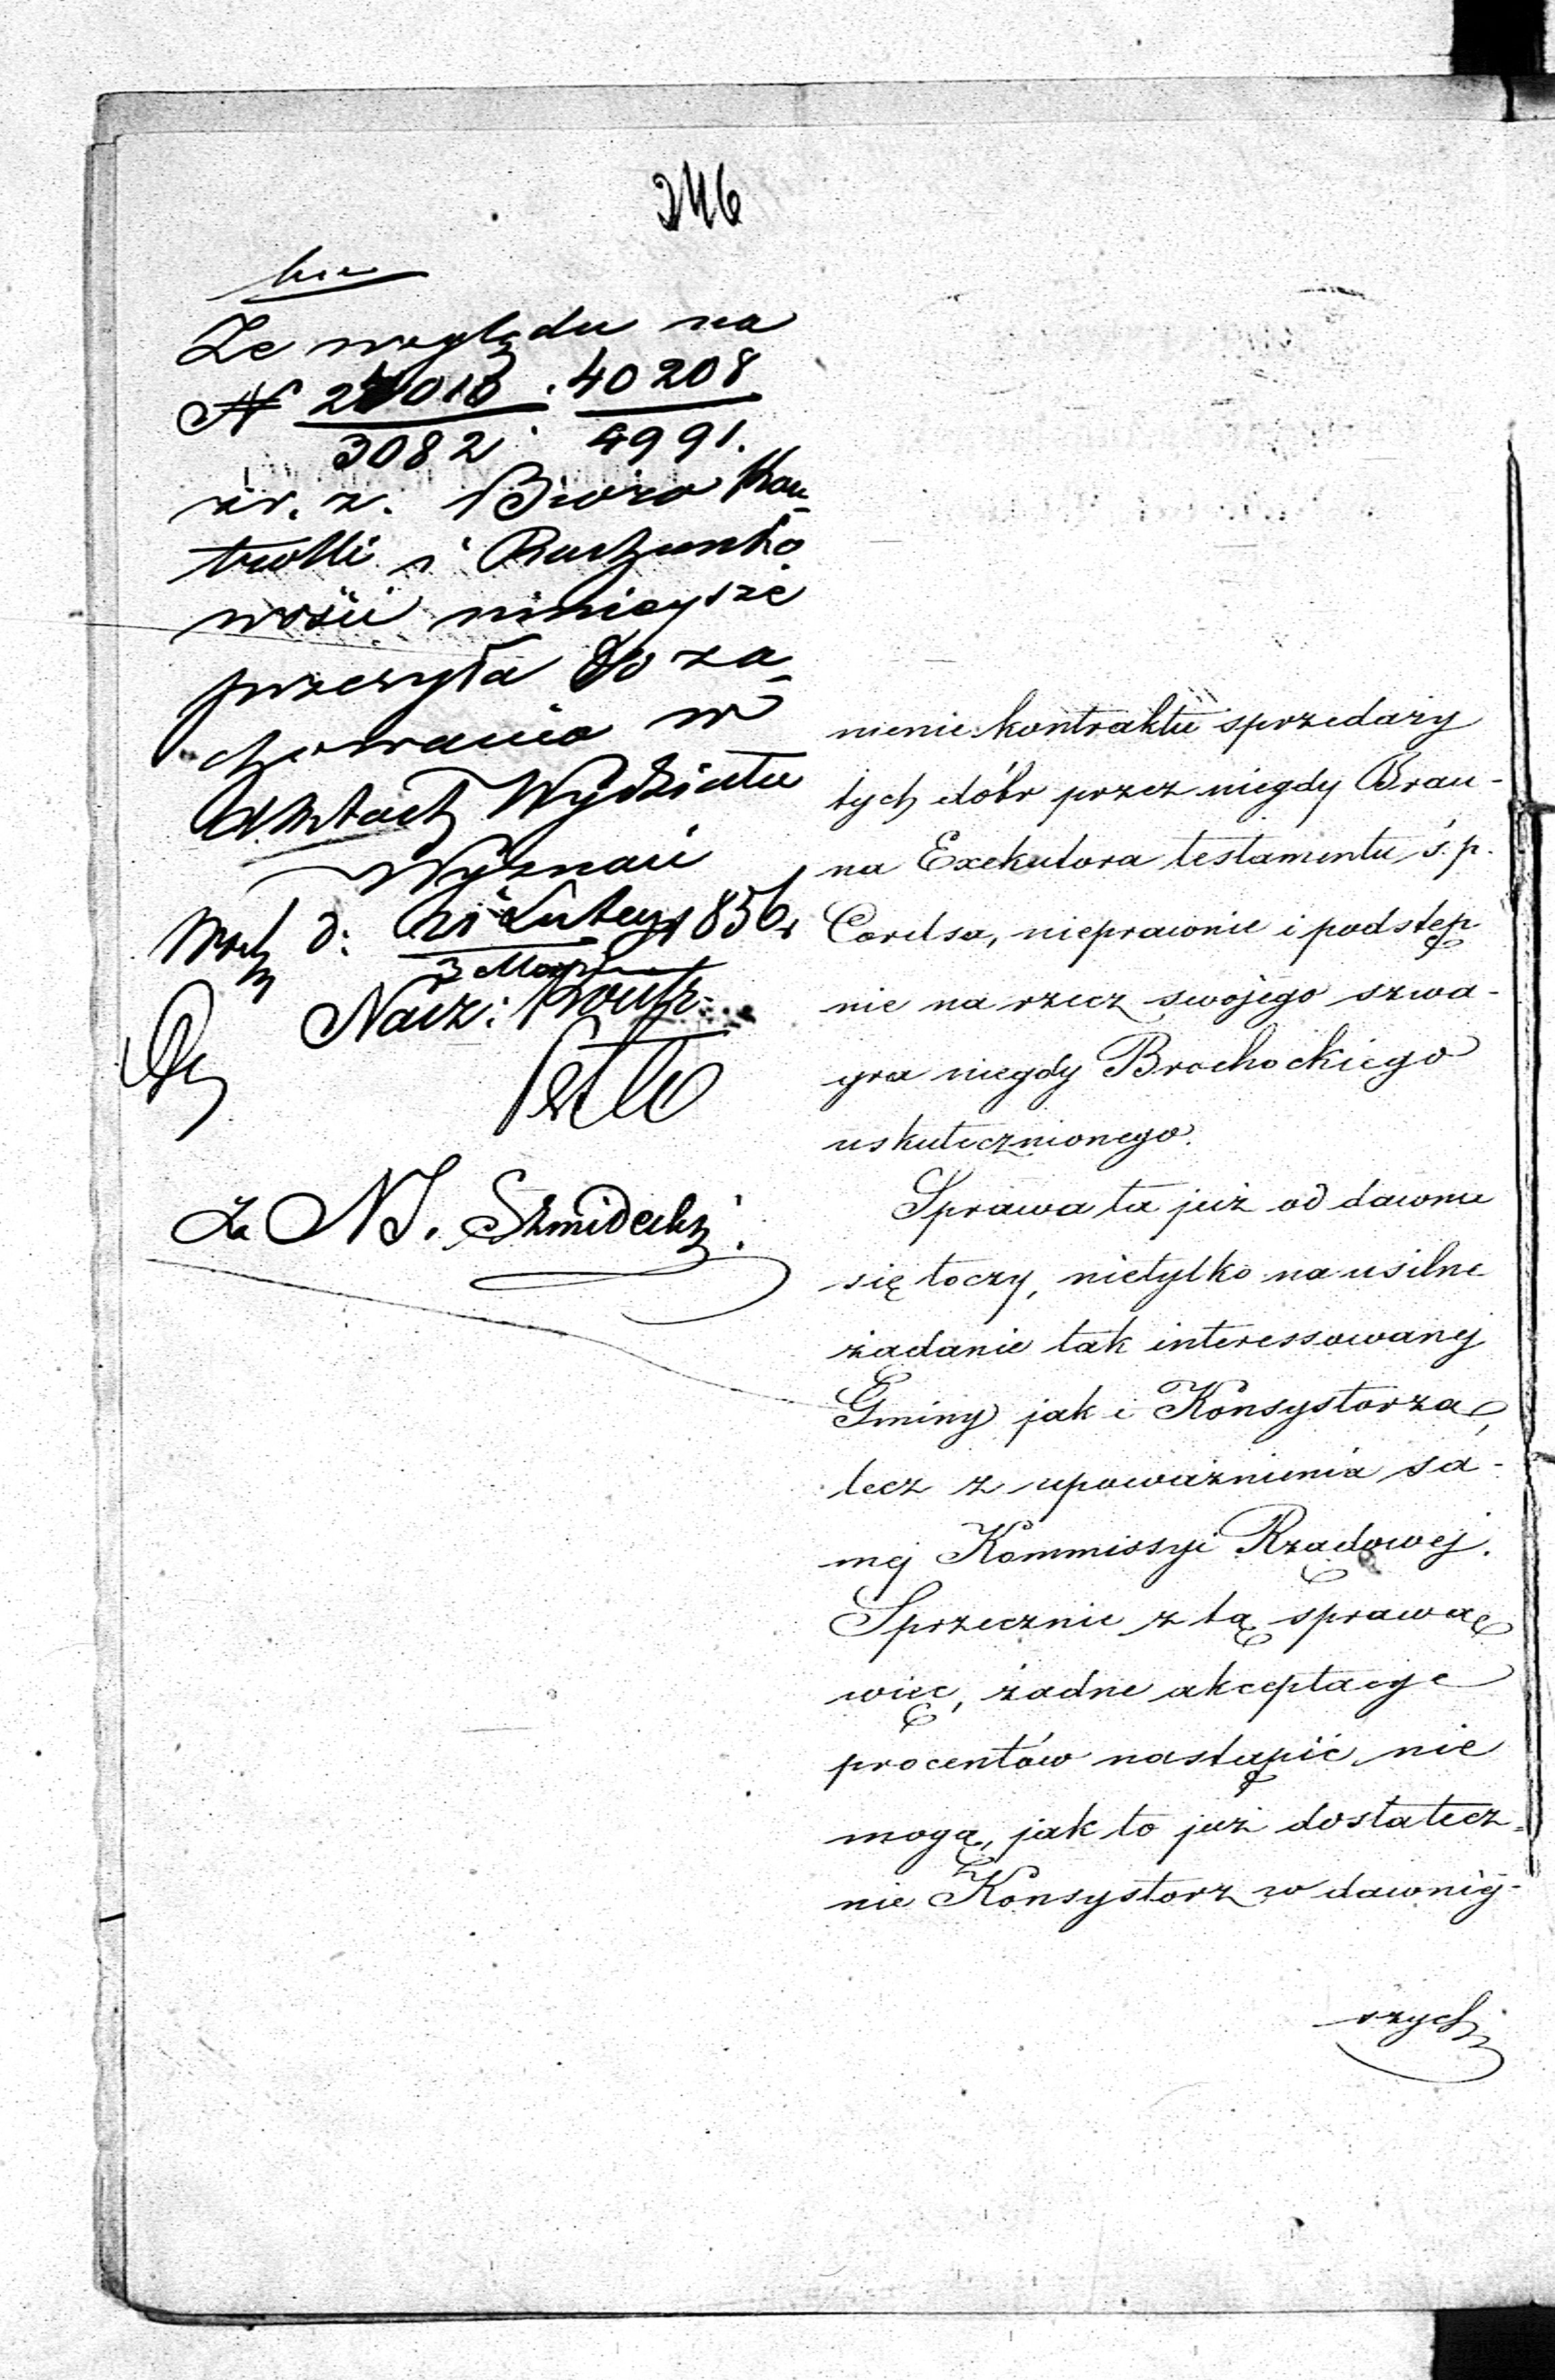 246
Ze względu na
N 24018 . 40208
3082 . 4991.
zr. z. Biuro Kon-
trolli i Rachunko
wości niniejsze
przesyła do za-
chowania w
Aktach Wydziału
Wyznań
d: Lutego 1856 r
3 Mar
Nacz: Kontr:
Za NS. Szmidecki.
nienie kontraktu sprzedaży
tych dóbr przez niegdy Brau-
na Exekutora testamentu ś. p.
Cordsa, nieprawnie i podstęp
nie na rzecz swojego szwa-
gra niegdy Brochockiego
uskutecznionego.
Sprawa ta już od dawna
się toczy, nietylko na usilne
żadanie tak interessowanej
Gminy jak i Konsystorza,
lecz z upoważnienia sa-
mej Kommissyi Rządowej.
Sprzecznie z tą sprawą
więc, żadne akceptacye
procentów nastąpić nie
mogą, jak to już dostatecz-
nie Konsystorz w dawniej-
szych